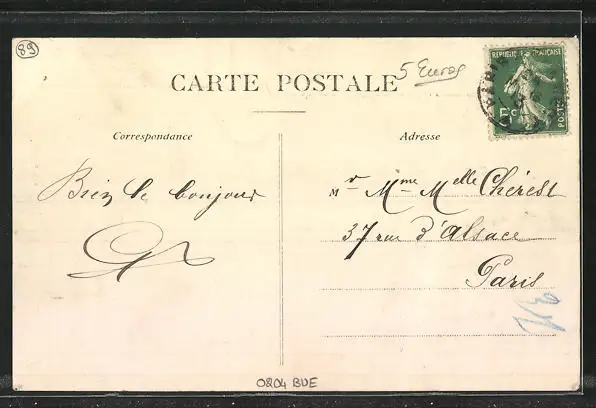 89
CARTE POSTALE
5 Euros
REPUBLIQUE FRANÇAISE
5c
POSTES
Correspondance
Adresse
Bien le bonjour
Mr Mme Melle Chérest
37 rue d'Alsace
Paris
0204 BUE